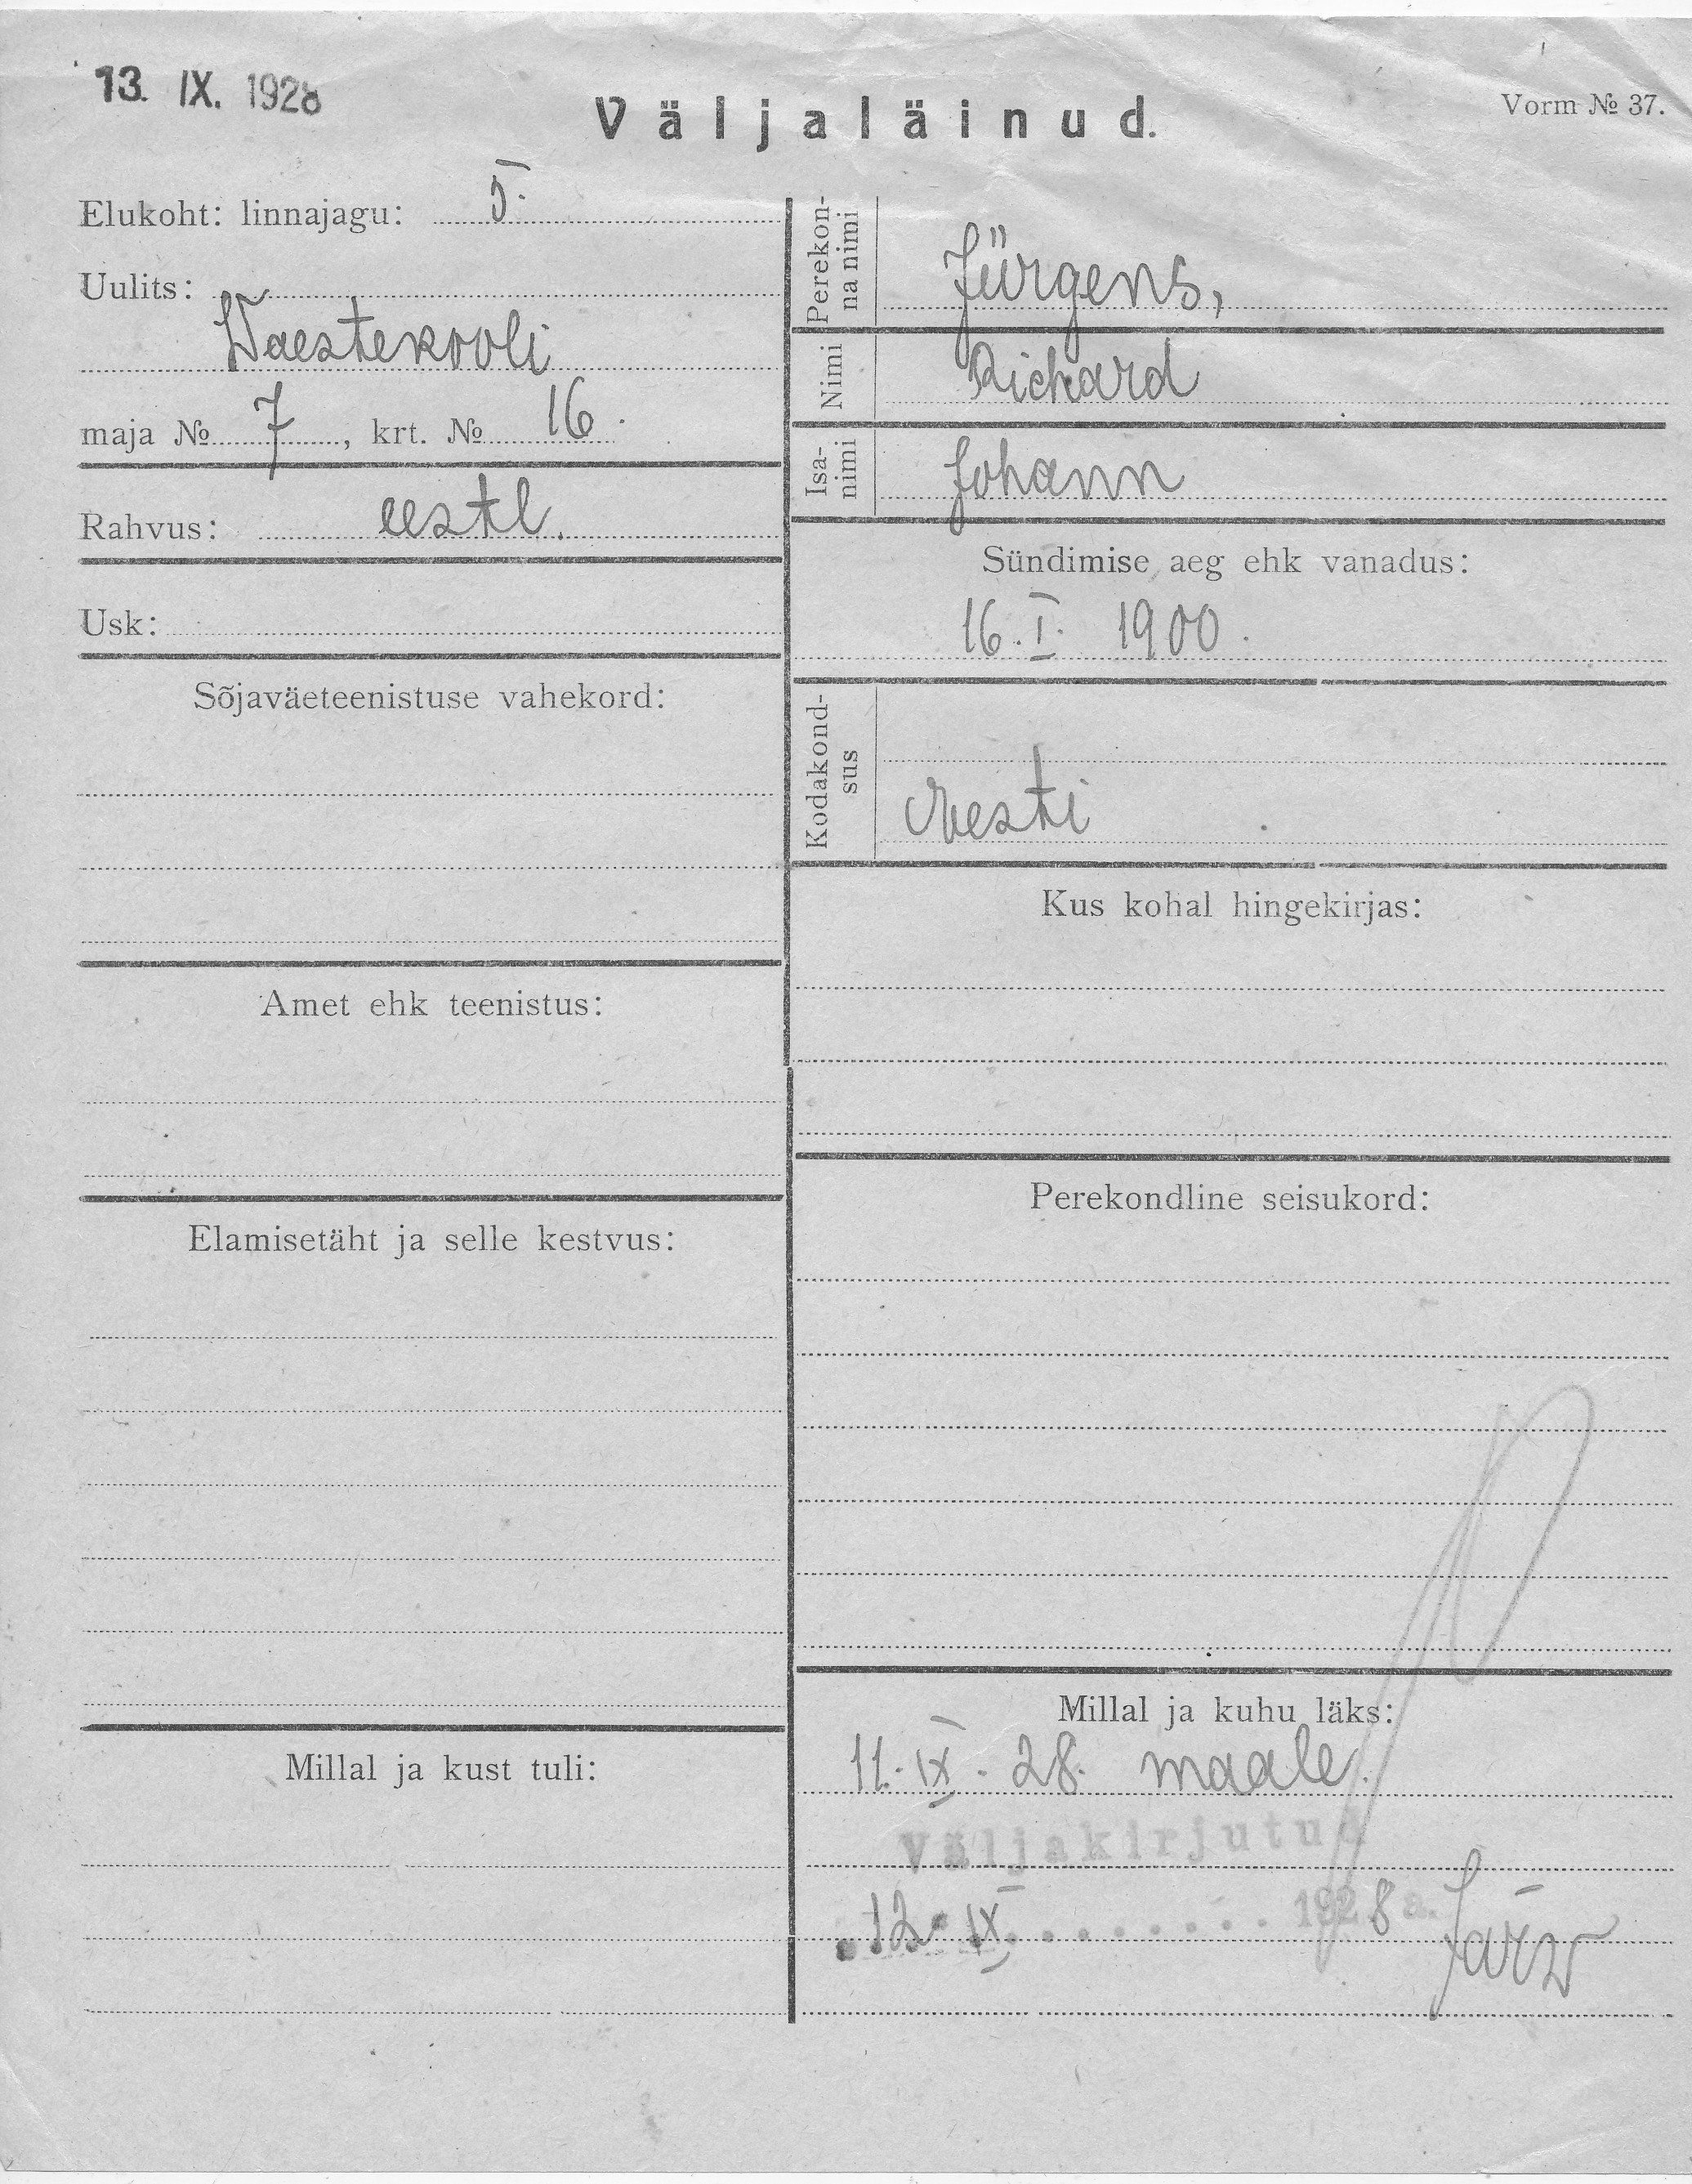 13. IX. 1928
Väljaläinud.
Vorm № 37.
Elukoht: linnajagu: 5.
Uulits:
Waestekooli
maja № 7, krt. № 16.
Rahvus: eestl.
Usk:
Sõjaväeteenistuse vahekord:
Amet ehk teenistus:
Elamisetäht ja selle kestvus:
Millal ja kust tuli:
Perekon-
na nimi
Jürgens,
Nimi
Richard
Isa-
nimi
Johann
Sündimise aeg ehk vanadus:
16. I. 1900.
Kodakond-
sus
Eesti
Kus kohal hingekirjas:
Perekondline seisukord:
Millal ja kuhu läks:
11. IX. 28. maale.
Väljakirjutud
12. IX 1928 a. Järw